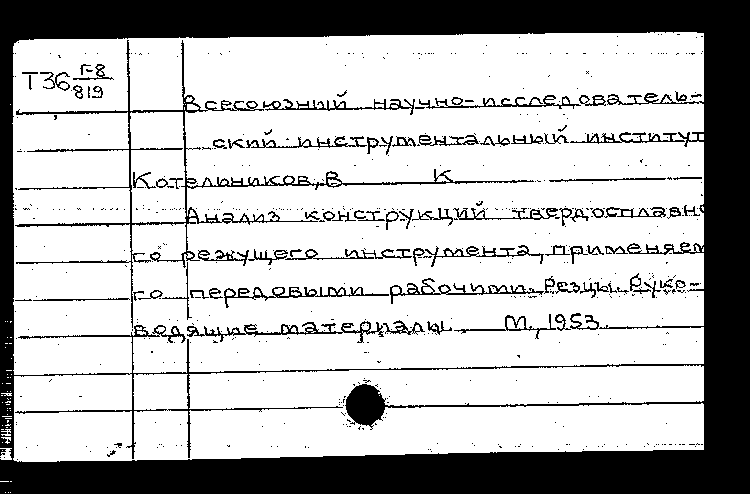 Т36 Г-8
819
Всесоюзный научно-исследователь-
ский инструментальный институт
Котельников, В К
Анализ конструкций твердосплавно
го режущего инструмента, применяем
го передовыми рабочими. Резцы. Руко-
водящие материалы. М., 1953.